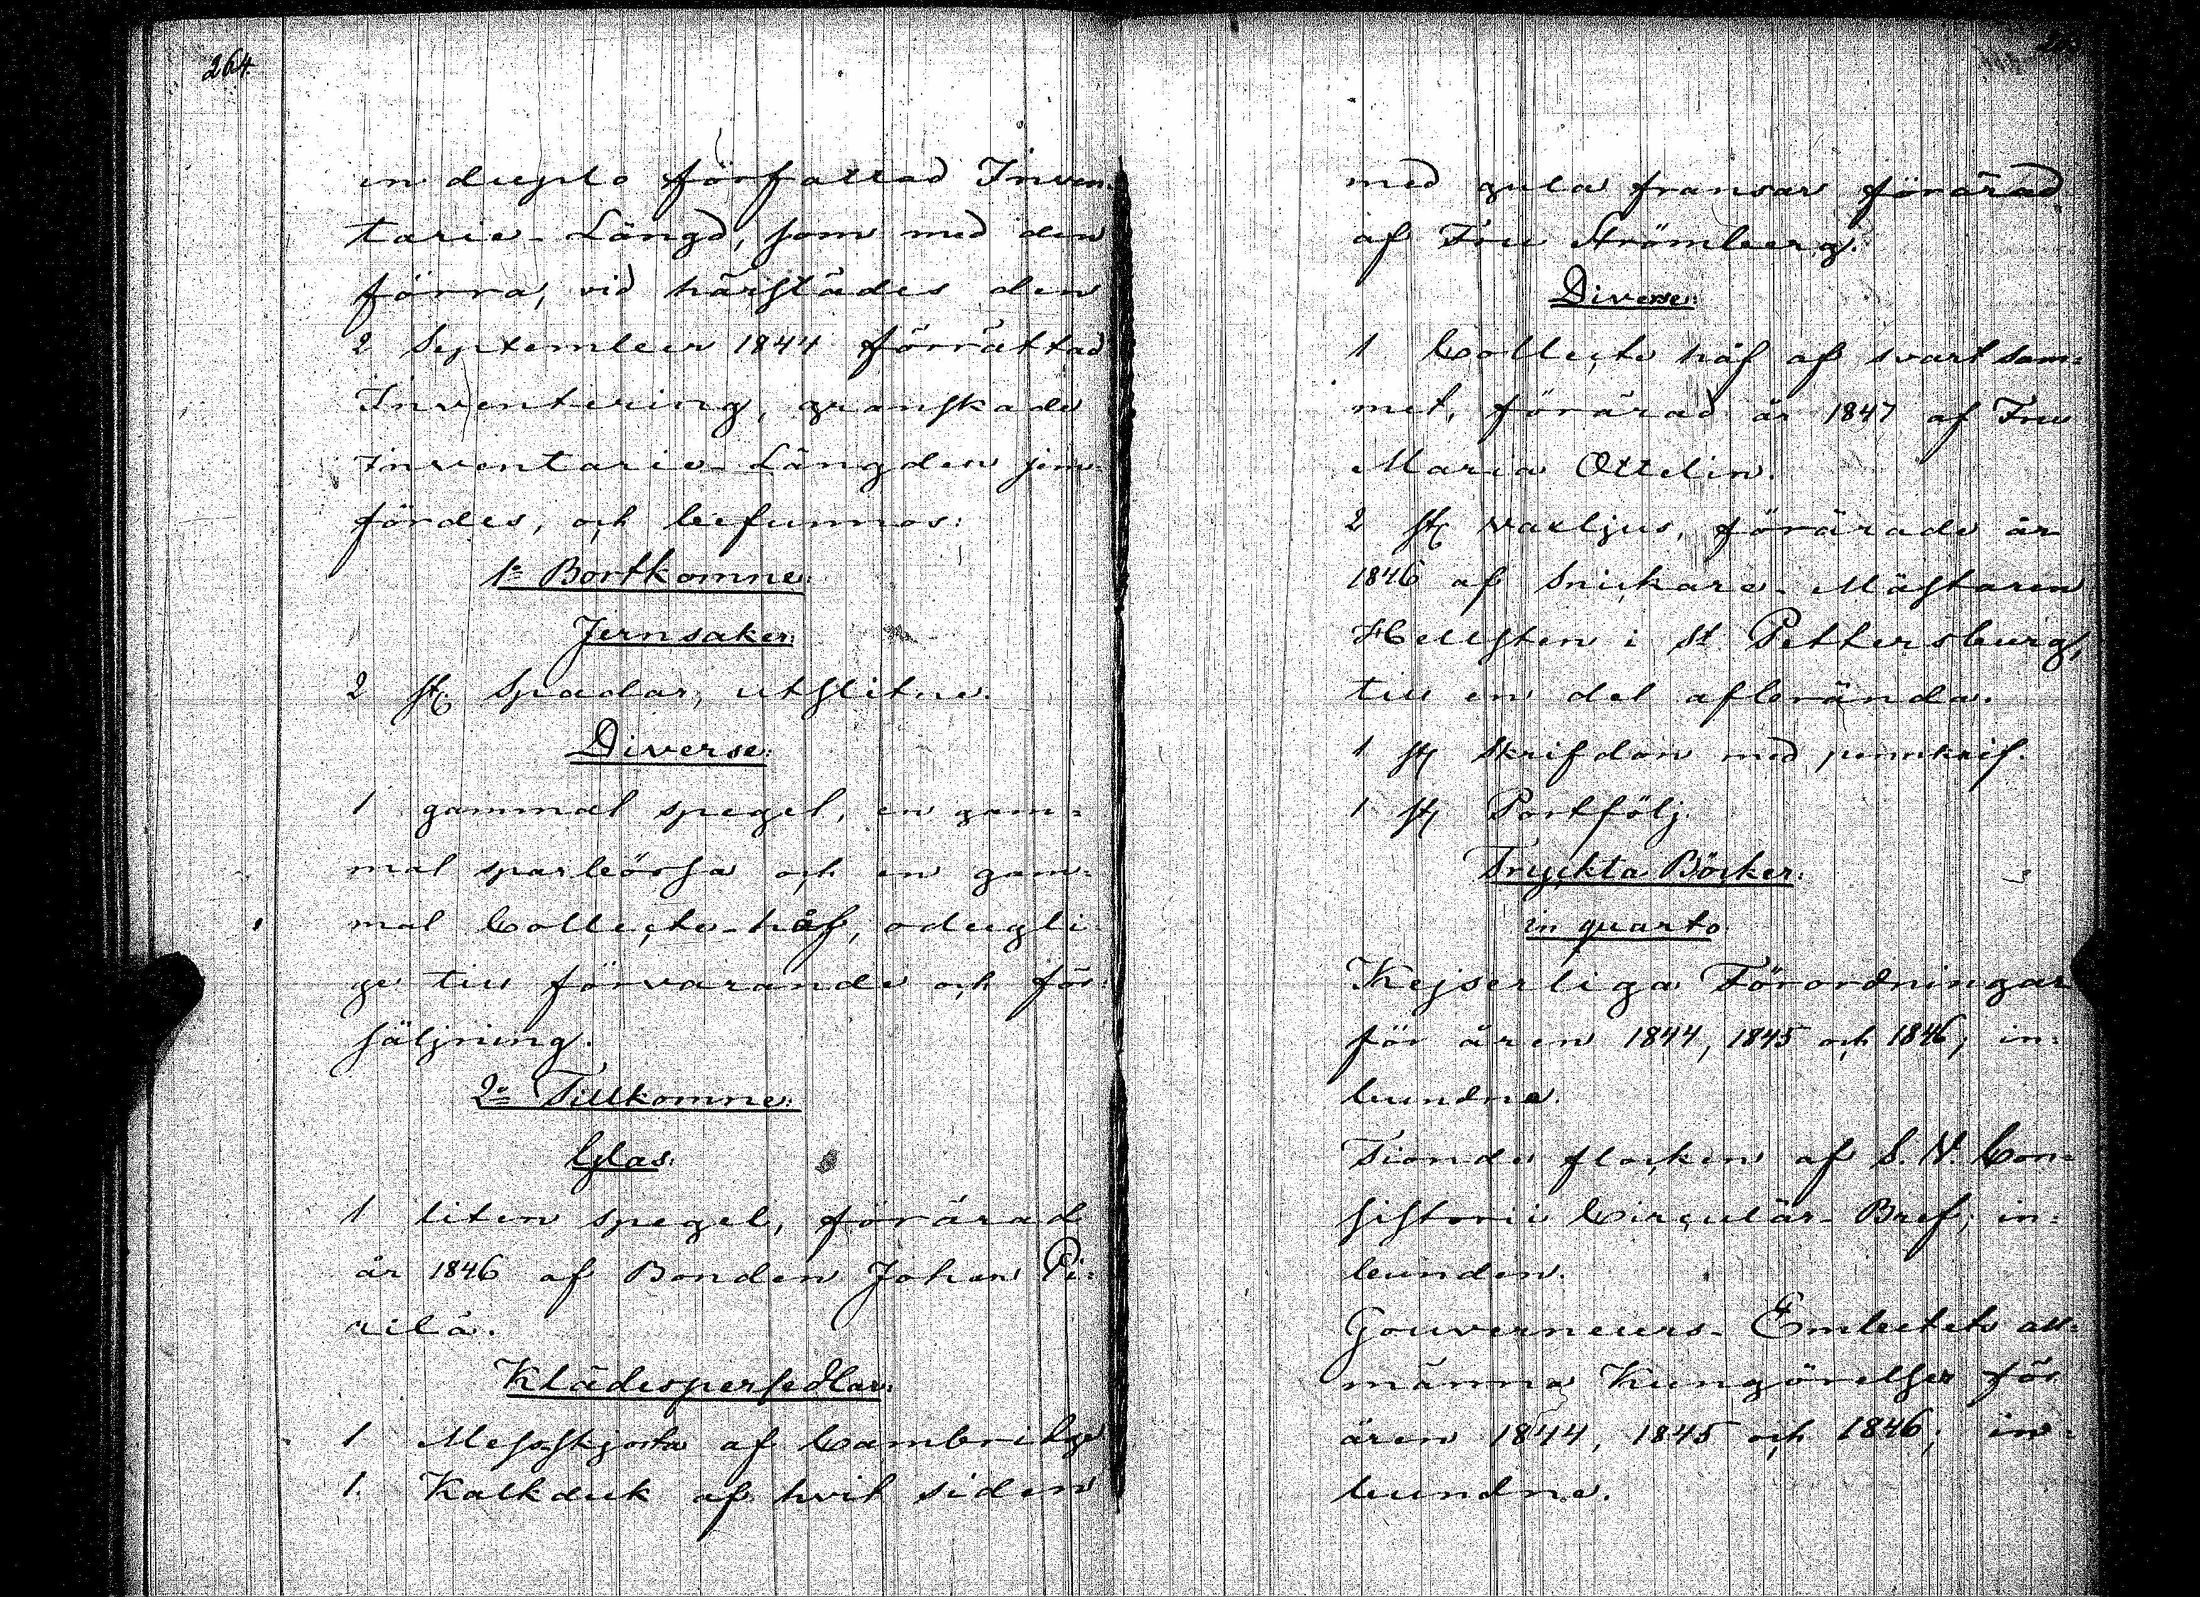 264.
in duplo författad Inven-
tarie-Längd, som med den
förra, vid härstädes den
2 September 1844 förrättad
Inventering, granskade
Inventarie-Längden jem-
fördes, och befunnos:
1:o Bortkomne.
Jernsaker:
2 st. Spadar, utslitne.
Diverse:
1 gammal spegel, en gam=
mal sparbörsa och en gam=
mal Collecte-håf, odugli-
ge till förvarande och för-
säljning.
2:o Tillkomne:
Glas:
1 liten spegel, förärad
år 1846 af Bonden Johan Pi=
rilä.
Klädespersedlar:
1 Messskjorta af Cambridge
1. Kalkduk af hvit siden
med gula fransar förärad
af Fru Strömberg.
Diverse:
1 Collecte håf af svart sam=
met, förärad år 1847 af Fru
Maria Ottelin.
2 st vaxljus, förärade år
1846 af Snickare-Mästaren
Hellsten i St Pettersburg,
till en del afbrända.
1 st Skrifdon med pennknif.
1 st Portfölj.
Tryckta Böcker:
in quarto.
Kejserliga Förordningar
för åren 1844, 1845 och 1846, in=
bundna.
Tionde flocken af S. V. Con=
sistorii Circulär-Bref, in=
bunden.
Gouverneurs-Embetets all=
männa Kungörelser för
åren 1844, 1845 och 1846, in=
bundne.